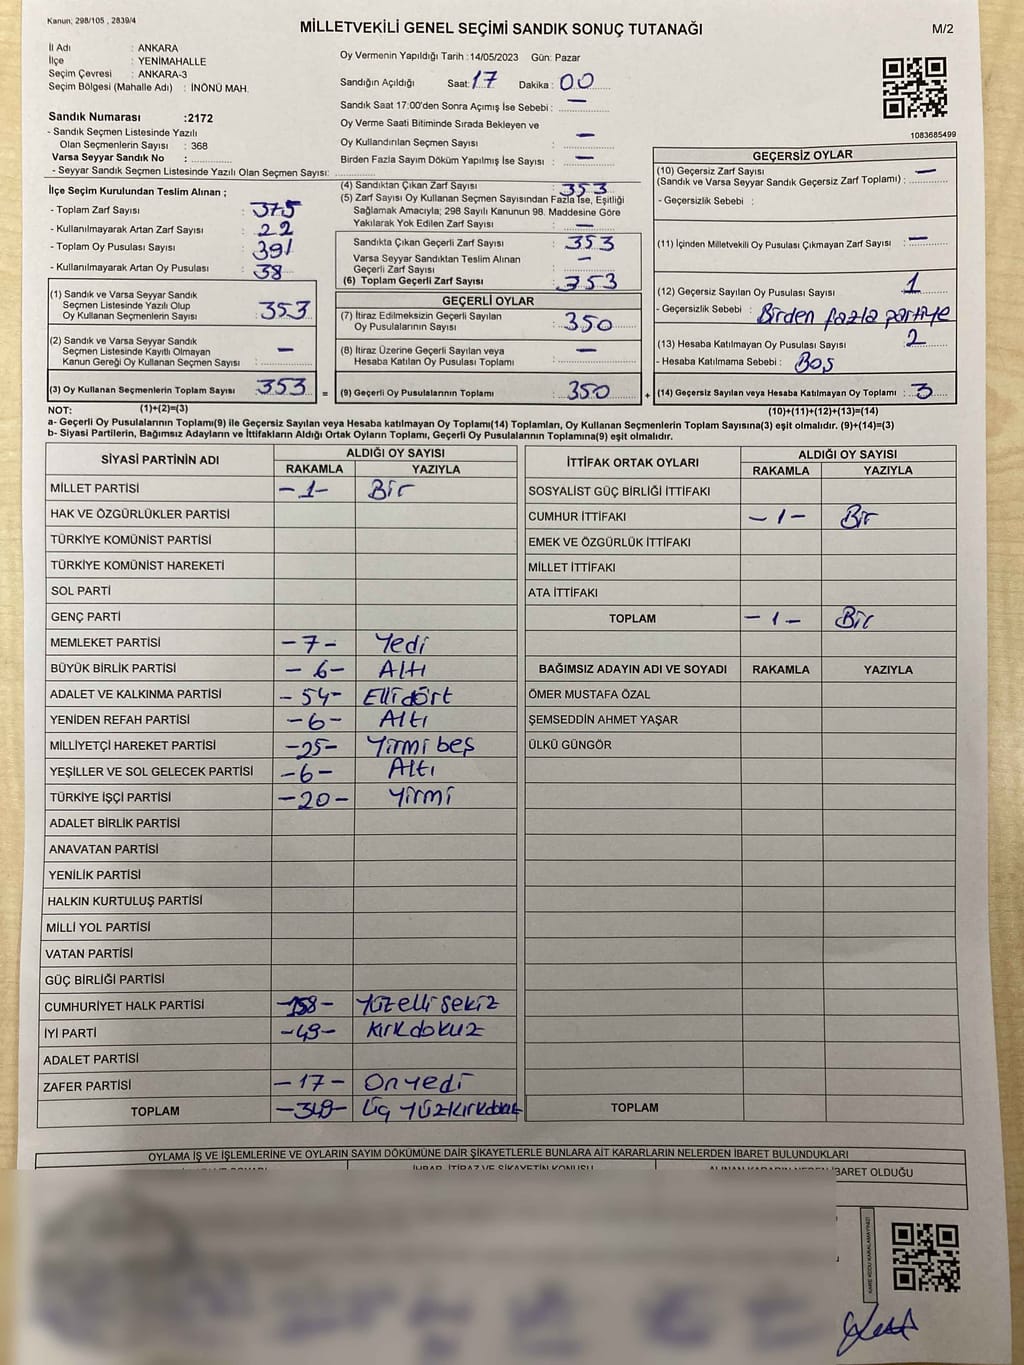 Kanun; 298/105 , 2839/4
MİLLETVEKİLİ GENEL SEÇİMİ SANDIK SONUÇ TUTANAĞI
M/2
İl Adı : ANKARA
İlçe : YENİMAHALLE
Seçim Çevresi : ANKARA-3
Seçim Bölgesi (Mahalle Adı) : İNÖNÜ MAH.
Sandık Numarası :2172
- Sandık Seçmen Listesinde Yazılı
Olan Seçmenlerin Sayısı : 368
Varsa Seyyar Sandık No :
- Seyyar Sandık Seçmen Listesinde Yazılı Olan Seçmen Sayısı:
Oy Vermenin Yapıldığı Tarih :14/05/2023 Gün: Pazar
Sandığın Açıldığı Saat: 17 Dakika : 00
Sandık Saat 17:00'den Sonra Açımış İse Sebebi : —
Oy Verme Saati Bitiminde Sırada Bekleyen ve
Oy Kullandırılan Seçmen Sayısı : —
Birden Fazla Sayım Döküm Yapılmış İse Sayısı : —
1083685499
İlçe Seçim Kurulundan Teslim Alınan ;
- Toplam Zarf Sayısı : 375
- Kullanılmayarak Artan Zarf Sayısı : 22
- Toplam Oy Pusulası Sayısı : 391
- Kullanılmayarak Artan Oy Pusulası : 38
(1) Sandık ve Varsa Seyyar Sandık
Seçmen Listesinde Yazılı Olup
Oy Kullanan Seçmenlerin Sayısı : 353
(2) Sandık ve Varsa Seyyar Sandık
Seçmen Listesinde Kayıtlı Olmayan
Kanun Gereği Oy Kullanan Seçmen Sayısı : —
(3) Oy Kullanan Seçmenlerin Toplam Sayısı : 353 =
(4) Sandıktan Çıkan Zarf Sayısı : 353
(5) Zarf Sayısı Oy Kullanan Seçmen Sayısından Fazla İse, Eşitliği
Sağlamak Amacıyla; 298 Sayılı Kanunun 98. Maddesine Göre
Yakılarak Yok Edilen Zarf Sayısı : —
Sandıkta Çıkan Geçerli Zarf Sayısı : 353
Varsa Seyyar Sandıktan Teslim Alınan
Geçerli Zarf Sayısı : —
(6) Toplam Geçerli Zarf Sayısı : 353
GEÇERLİ OYLAR
(7) İtiraz Edilmeksizin Geçerli Sayılan
Oy Pusulalarının Sayısı : 350
(8) İtiraz Üzerine Geçerli Sayılan veya
Hesaba Katılan Oy Pusulası Toplamı : —
(9) Geçerli Oy Pusulalarının Toplamı : 350 +
GEÇERSİZ OYLAR
(10) Geçersiz Zarf Sayısı
(Sandık ve Varsa Seyyar Sandık Geçersiz Zarf Toplamı) : —
- Geçersizlik Sebebi :
(11) İçinden Milletvekili Oy Pusulası Çıkmayan Zarf Sayısı : —
(12) Geçersiz Sayılan Oy Pusulası Sayısı : 1
- Geçersizlik Sebebi : Birden fazla partiye
(13) Hesaba Katılmayan Oy Pusulası Sayısı : 2
- Hesaba Katılmama Sebebi : Boş
(14) Geçersiz Sayılan veya Hesaba Katılmayan Oy Toplamı : 3
NOT: (1)+(2)=(3)
(10)+(11)+(12)+(13)=(14)
a- Geçerli Oy Pusulalarının Toplamı(9) ile Geçersiz Sayılan veya Hesaba katılmayan Oy Toplamı(14) Toplamları, Oy Kullanan Seçmenlerin Toplam Sayısına(3) eşit olmalıdır. (9)+(14)=(3)
b- Siyasi Partilerin, Bağımsız Adayların ve İttifakların Aldığı Ortak Oyların Toplamı, Geçerli Oy Pusulalarının Toplamına(9) eşit olmalıdır.
SİYASİ PARTİNİN ADI ALDIĞI OY SAYISI
RAKAMLA YAZIYLA
MİLLET PARTİSİ -1- Bir
HAK VE ÖZGÜRLÜKLER PARTİSİ
TÜRKİYE KOMÜNİST PARTİSİ
TÜRKİYE KOMÜNİST HAREKETİ
SOL PARTİ
GENÇ PARTİ
MEMLEKET PARTİSİ -7- Yedi
BÜYÜK BİRLİK PARTİSİ -6- Altı
ADALET VE KALKINMA PARTİSİ -54- Elli dört
YENİDEN REFAH PARTİSİ -6- Altı
MİLLİYETÇİ HAREKET PARTİSİ -25- Yirmi beş
YEŞİLLER VE SOL GELECEK PARTİSİ -6- Altı
TÜRKİYE İŞÇİ PARTİSİ -20- Yirmi
ADALET BİRLİK PARTİSİ
ANAVATAN PARTİSİ
YENİLİK PARTİSİ
HALKIN KURTULUŞ PARTİSİ
MİLLİ YOL PARTİSİ
VATAN PARTİSİ
GÜÇ BİRLİĞİ PARTİSİ
CUMHURİYET HALK PARTİSİ -158- Yüzelli sekiz
İYİ PARTİ -49- Kırk dokuz
ADALET PARTİSİ
ZAFER PARTİSİ -17- Onyedi
TOPLAM -349- Üç Yüzkırkdokuz
İTTİFAK ORTAK OYLARI ALDIĞI OY SAYISI
RAKAMLA YAZIYLA
SOSYALİST GÜÇ BİRLİĞİ İTTİFAKI
CUMHUR İTTİFAKI -1- Bir
EMEK VE ÖZGÜRLÜK İTTİFAKI
MİLLET İTTİFAKI
ATA İTTİFAKI
TOPLAM -1- Bir
BAĞIMSIZ ADAYIN ADI VE SOYADI RAKAMLA YAZIYLA
ÖMER MUSTAFA ÖZAL
ŞEMSEDDİN AHMET YAŞAR
ÜLKÜ GÜNGÖR
TOPLAM
OYLAMA İŞ VE İŞLEMLERİNE VE OYLARIN SAYIM DÖKÜMÜNE DAİR ŞİKAYETLERLE BUNLARA AİT KARARLARIN NELERDEN İBARET BULUNDUKLARI
İHBAR, İTİRAZ VE ŞİKAYETİN KONUSU
ALINAN KARARIN NEDEN İBARET OLDUĞU